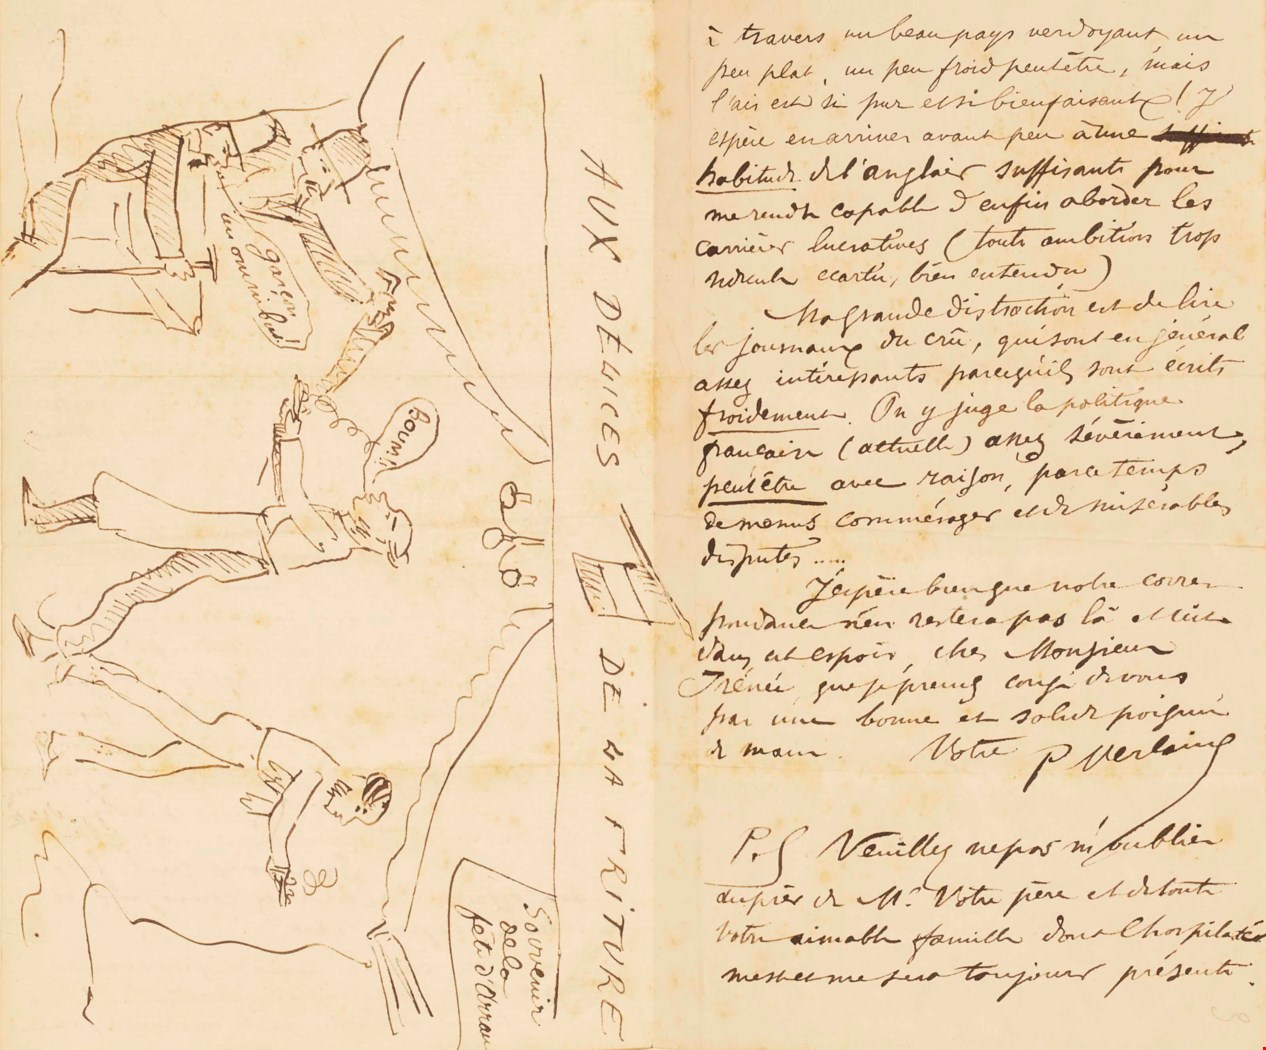 AUX DELICES DE LA FRITURE
garçon
un omnibus!
Boum!!
Souvenir
de la
fête d'Arras
à travers un beau pays verdoyant un
peu plat, un peu froid peutêtre, mais
l'air est si pur et si bienfaisant! J'
espère en arriver avant peu à une
habitude de l'anglais suffisante pour
me rendre capable d'enfin aborder les
carrières lucratives (toute ambition trop
ridicule écartée, bien entendu)
Ma grande distraction est de lire
les journaux du crû, qui sont en général
assez intéressants parcequ'ils sont écrits
froidement. On y juge la politique
française (actuelle) assez sévèrement,
peutêtre avec raison, par ce temps
de menus commérages et de misérables
disputes .....
J'espère bien que notre corres-
pondance n'en restera pas là et c'est
dans cet espoir, cher Monsieur
Irénée, que je prends congé de vous
par une bonne et solide poignée
de main. Votre P Verlaine
P.S Veuillez ne pas m'oublier
auprès de Mr Votre père et de toute
votre aimable famille dont l'hospitalité
me sera toujours présente.